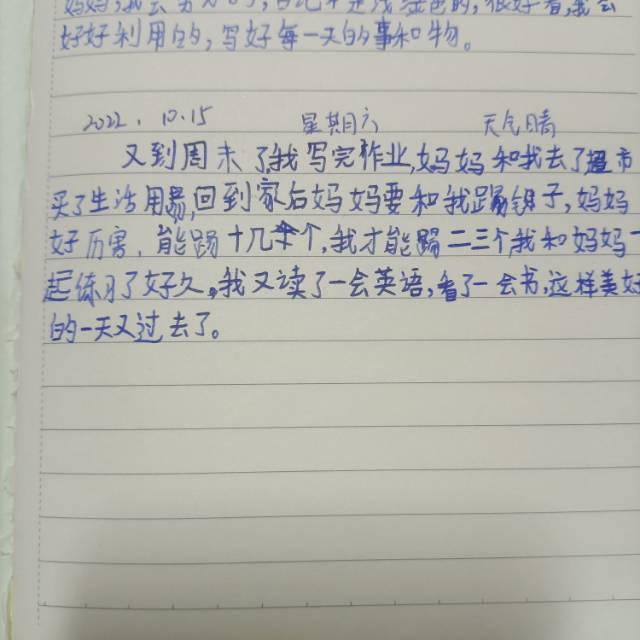 妈妈,我会
好好利用的,写好每一天的事和物。
2022.10.15 星期六 天气晴
又到周末了我写完作业,妈妈和我去了超市
买了生活用易,回到家后妈妈要和我踢毽子,妈妈
好厉害,能踢十几个,我才能踢二三个,我和妈妈一
起练习了好久。我又读了一会英语,看了一会书,这样美好
的一天又过去了。